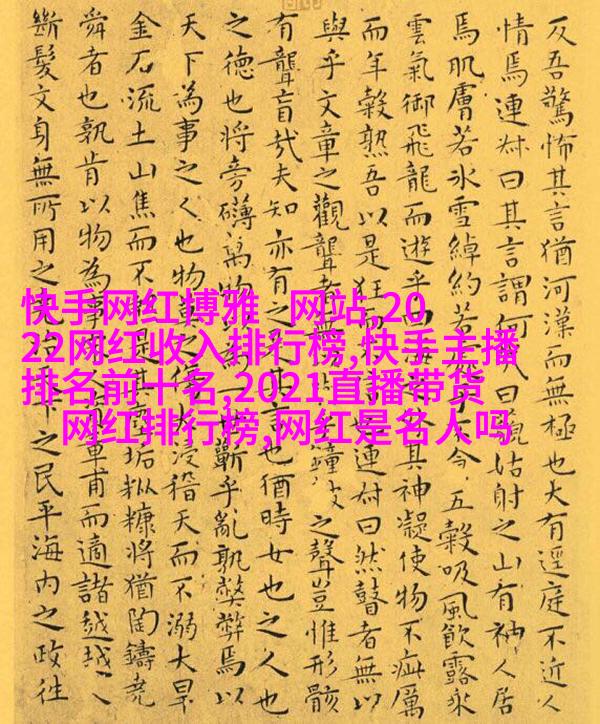 反吾驚怖其言猶河漢而無極也大有逕庭不近人
情焉連尗曰其言謂何曰藐姑射之山有神人居
焉肌膚若冰雪綽約若子五穀吸風飲露乘
雲氣御飛龍而遊乎其神凝使物不疵厲
而年穀熟吾以是狂而連尗曰然瞽者無以
與乎文章之觀聾者無鐘鼓之聲豈惟形骸
有聾盲哉夫知亦有之是其言也猶時女也之人也
之德也將旁礴萬物世蘄乎亂孰弊弊焉以
天下為事之人也物莫之傷大浸稽天而不溺大旱
金石流土山焦而不是其垢粃糠將猶陶鑄堯
舜者也孰肯以物為事章甫而適諸越越人
斷髮文身無所用之下之民平海內之政往
快手网红博雅 网站,20
22网红收入排行榜,快手主播
排名前十名,2021直播带货
网红排行榜,网红是名人吗